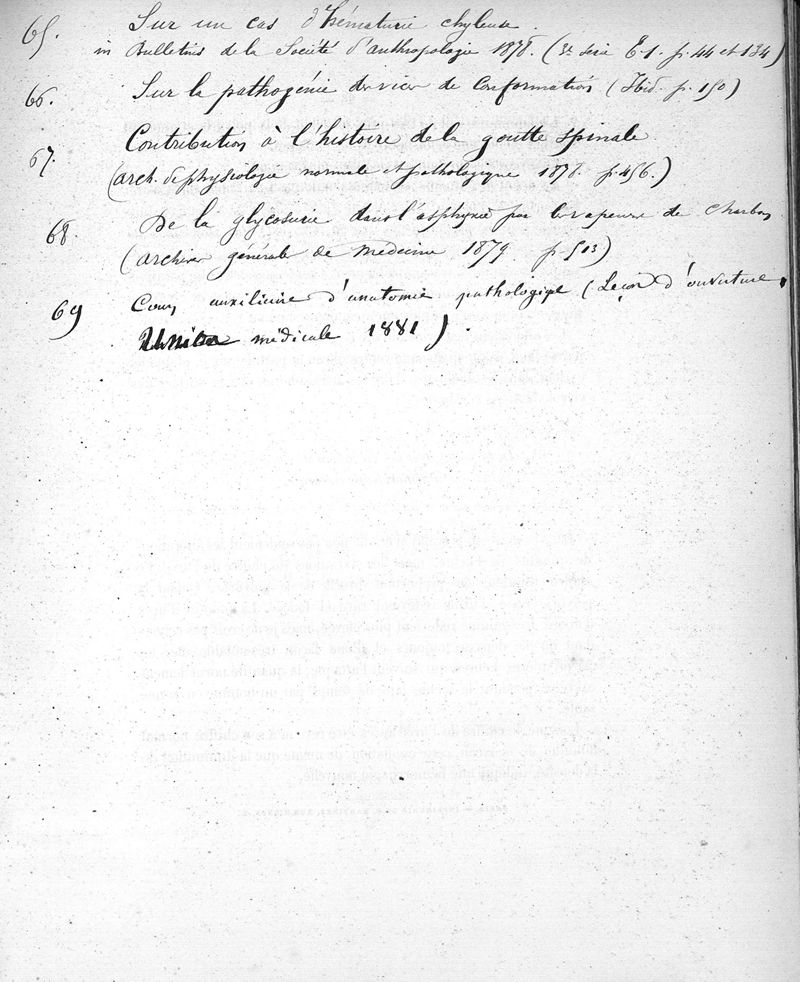 65. Sur un cas d'hématurie chyleuse.
in Bulletins de la Société d'anthropologie 1878. (3e serie t. 1. p. 44 et 134)
66. Sur la pathogénie des vices de conformation (Ibid. p. 150)
67. Contribution à l'histoire de la goutte spinale
(arch. de physiologie normale et pathologique 1878. p. 456.)
68. De la glycosurie dans l'asphyxie par les vapeurs de charbon
(archives générales de médecine 1879 p. 513)
69 Cours auxiliaire d'anatomie pathologique (Leçon d'ouverture,
Union médicale 1881).